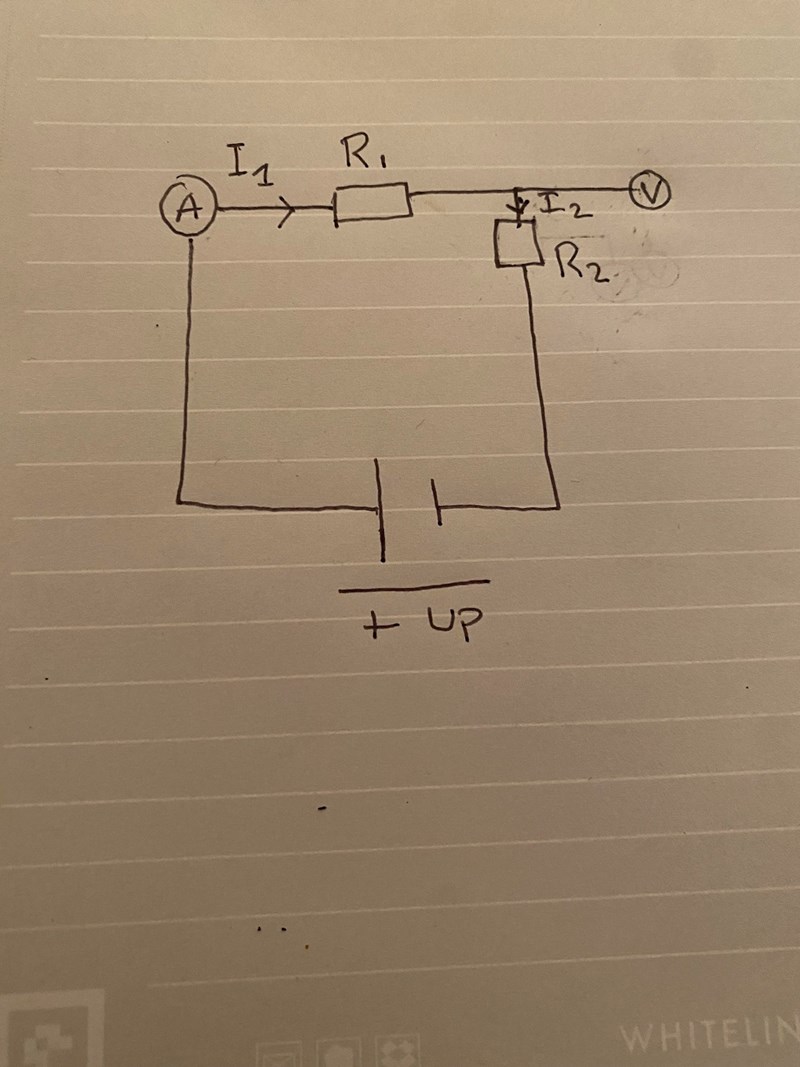 I1
R1
A
V
I2
R2
+ UP
WHITELIN